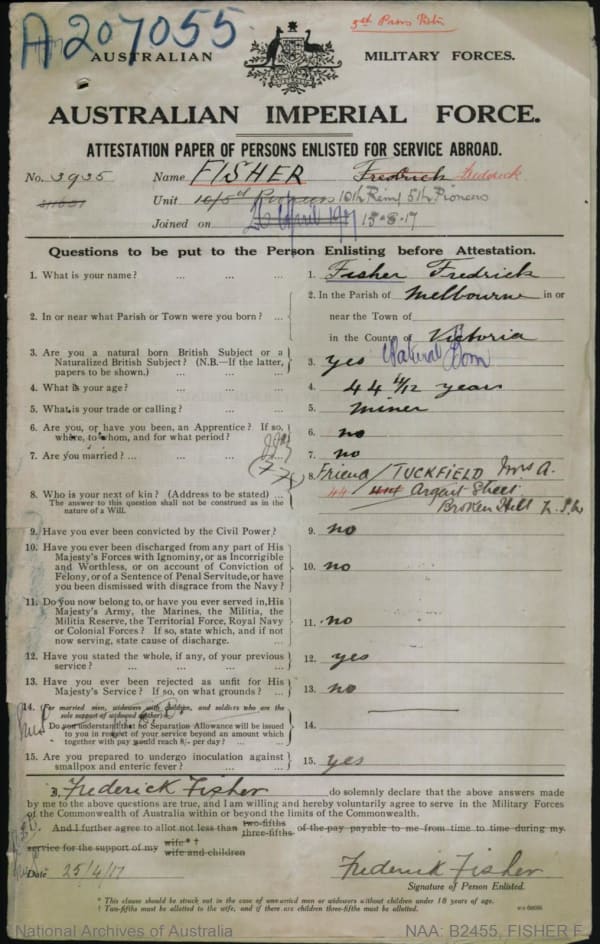 A207055
AUSTRALIAN MILITARY FORCES.
AUSTRALIAN IMPERIAL FORCE.
ATTESTATION PAPER OF PERSONS ENLISTED FOR SERVICE ABROAD.
No. 3935 Name FISHER Fredrick Frederick
Unit 10th Reinf 5th Pioneers
Joined on 26 April 1917
Questions to be put to the Person Enlisting before Attestation.
1. What is your name? ... ... ... 1. Fisher Fredrick
2. In or near what Parish or Town were you born? ... 2. In the Parish of Melbourne in or
near the Town of
in the County of Victoria
3. Are you a natural born British Subject or a
Naturalized British Subject? (N.B.—If the latter,
papers to be shown.) ... ... 3. yes Natural Born
4. What is your age? ... ... ... 4. 44 years
5. What is your trade or calling? ... ... 5. miner
6. Are you, or have you been, an Apprentice? If so,
where, to whom, and for what period? 6. no
7. Are you married? ... ... 7. no
8. Who is your next of kin? (Address to be stated) ... 8. Friend / TUCKFIELD Mrs A.
The answer to this question shall not be construed as in the
nature of a Will. 44 Argent Street
Broken Hill
9. Have you ever been convicted by the Civil Power? 9. no
10. Have you ever been discharged from any part of His
Majesty's Forces with Ignominy, or as Incorrigible
and Worthless, or on account of Conviction of
Felony, or of a Sentence of Penal Servitude, or have
you been dismissed with disgrace from the Navy? 10. no
11. Do you now belong to, or have you ever served in, His
Majesty's Army, the Marines, the Militia, the
Militia Reserve, the Territorial Force, Royal Navy
or Colonial Forces? If so, state which, and if not
now serving, state cause of discharge. ... 11. no
12. Have you stated the whole, if any, of your previous
service? ... ... ... 12. yes
13. Have you ever been rejected as unfit for His
Majesty's Service? If so, on what grounds? ... 13. no
14. (For married men, widowers with children, and soldiers who are the
sole support of widowed mother)
Do you understand that no Separation Allowance will be issued
to you in respect of your service beyond an amount which
together with pay would reach 8/- per day? ... 14.
15. Are you prepared to undergo inoculation against
smallpox and enteric fever? ... 15. yes
I, Frederick Fisher do solemnly declare that the above answers made
by me to the above questions are true, and I am willing and hereby voluntarily agree to serve in the Military Forces
of the Commonwealth of Australia within or beyond the limits of the Commonwealth.
And I further agree to allot not less than two-fifths three-fifths of the pay payable to me from time to time during my
service for the support of my wife * † wife and children
Date 25/4/17 Frederick Fisher
Signature of Person Enlisted.
* This clause should be struck out in the case of unmarried men or widowers without children under 18 years of age.
† Two-fifths must be allotted to the wife, and if there are children three-fifths must be allotted.
National Archives of Australia NAA: B2455, FISHER F